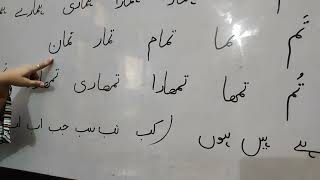 ہمارا ہماری ہمارے
تَم تما تمام تمار تمان
تُم تمھا تمھارا تمھاری
ہے ہیں ہوں (کب تب سب جب اب